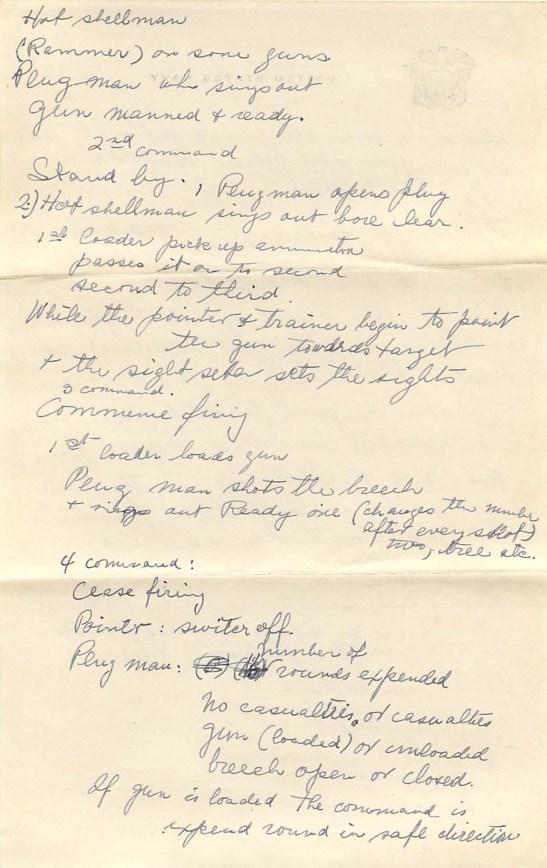 Hot shellman
(Rammer) on some guns
Plug man who sings out
Gun manned & ready.
2nd command
Stand by. 1 Plugman opens plug
2) Hot shellman sings out bore lear.
1st loader pick up ammunition
passes it on to second
second to third.
While the pointer & trainer begin to point
the gun towards target
& the sight seter sets the sights
3 command.
Commence firing
1st loader loads gun
Plug man shots the breech
& sings out Ready one (changes the number
after every shot)
two, tree etc.
4 command:
Cease firing
Pointr: switer off.
number of
Plug man: rounds expended
No casualties, or casualties
gun (loaded) or unloaded
breech open or closed.
If gun is loaded the command is
expend round in safe direction
UNITED STATES NAVY